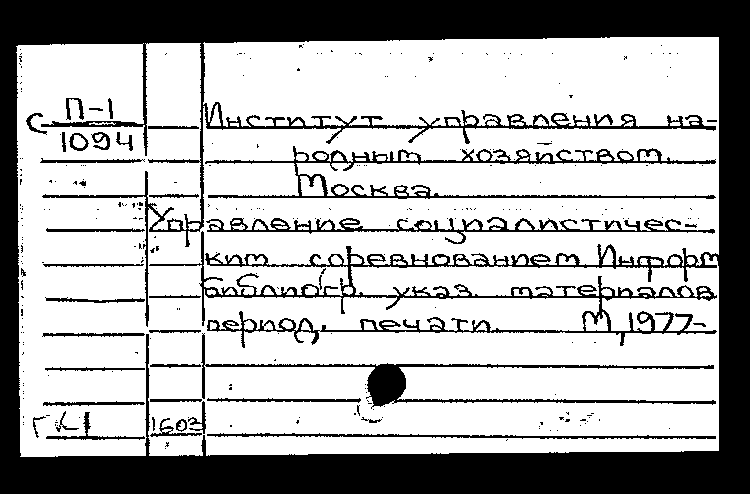 С П-1
1094
Институт управления на-
родным хозяйством.
Москва.
Управление социалистичес-
ким соревнованием Информ
библиогр. указ. материалов
период. печати. М, 1977-
1603